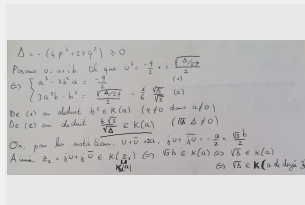 Δ = -(4p³+27q²) ≥ 0
Posons u = a+ib tel que u³ = -q/2 + i √(Δ/27)/2
(1)
⇔ { a³ - 3b²a = -q/2
3a²b - b³ = √(Δ/27)/2 = 1/6 √Δ/√3 (2)
De (1) on déduit b² ∈ K(a) (q ≠ 0 donc a ≠ 0)
De (2) on déduit b√3/√Δ ∈ K(a) (Δ ≠ 0)
Or, par les notations, u+ū = 2a,
Ainsi z₂ = ju + \overline{ju} ∈ K(z₁) ⇔ √3b ∈ K(a) ⇔ √Δ ∈ K(a)
K(a)
⇔ √Δ ∈ K (a de degré 3)